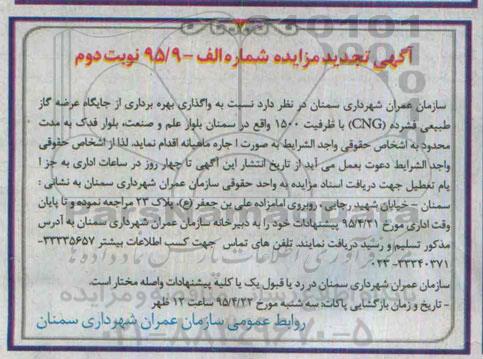 آگهی تجدید مزایده شماره الف - ۹۵/۹ نوبت دوم
سازمان عمران شهرداری سمنان در نظر دارد نسبت به واگذاری بهره برداری از جایگاه عرضه گاز
طبیعی فشرده (CNG) با ظرفیت ۱۵۰۰ واقع در سمنان بلوار علم و صنعت، بلوار فدک به مدت
محدود به اشخاص حقوقی واجد الشرایط به صورت اجاره ماهیانه اقدام نماید. لذا از اشخاص حقوقی
واجد الشرایط دعوت بعمل می آید از تاریخ انتشار این آگهی تا چهار روز در ساعات اداری به جز ا
یام تعطیل جهت دریافت اسناد مزایده به واحد حقوقی سازمان عمران شهرداری سمنان به نشانی :
سمنان - خیابان شهید رجایی، روبروی امامزاده علی بن جعفر (ع)، پلاک ۲۳ مراجعه نموده و تا پایان
وقت اداری مورخ ۹۵/۴/۲۱ پیشنهادات خود را به دبیرخانه سازمان عمران شهرداری سمنان به آدرس
مذکور تسلیم و رسید دریافت نمایند. تلفن های تماس جهت کسب اطلاعات بیشتر ۳۳۳۳۵۶۵۷-
۳۳۳۴۰۳۷۱-۰۲۳
سازمان عمران شهرداری سمنان در رد یا قبول یک یا کلیه پیشنهادات واصله مختار است.
- تاریخ و زمان بازگشایی پاکات: سه شنبه مورخ ۹۵/۴/۲۲ ساعت ۱۲ ظهر
روابط عمومی سازمان عمران شهرداری سمنان